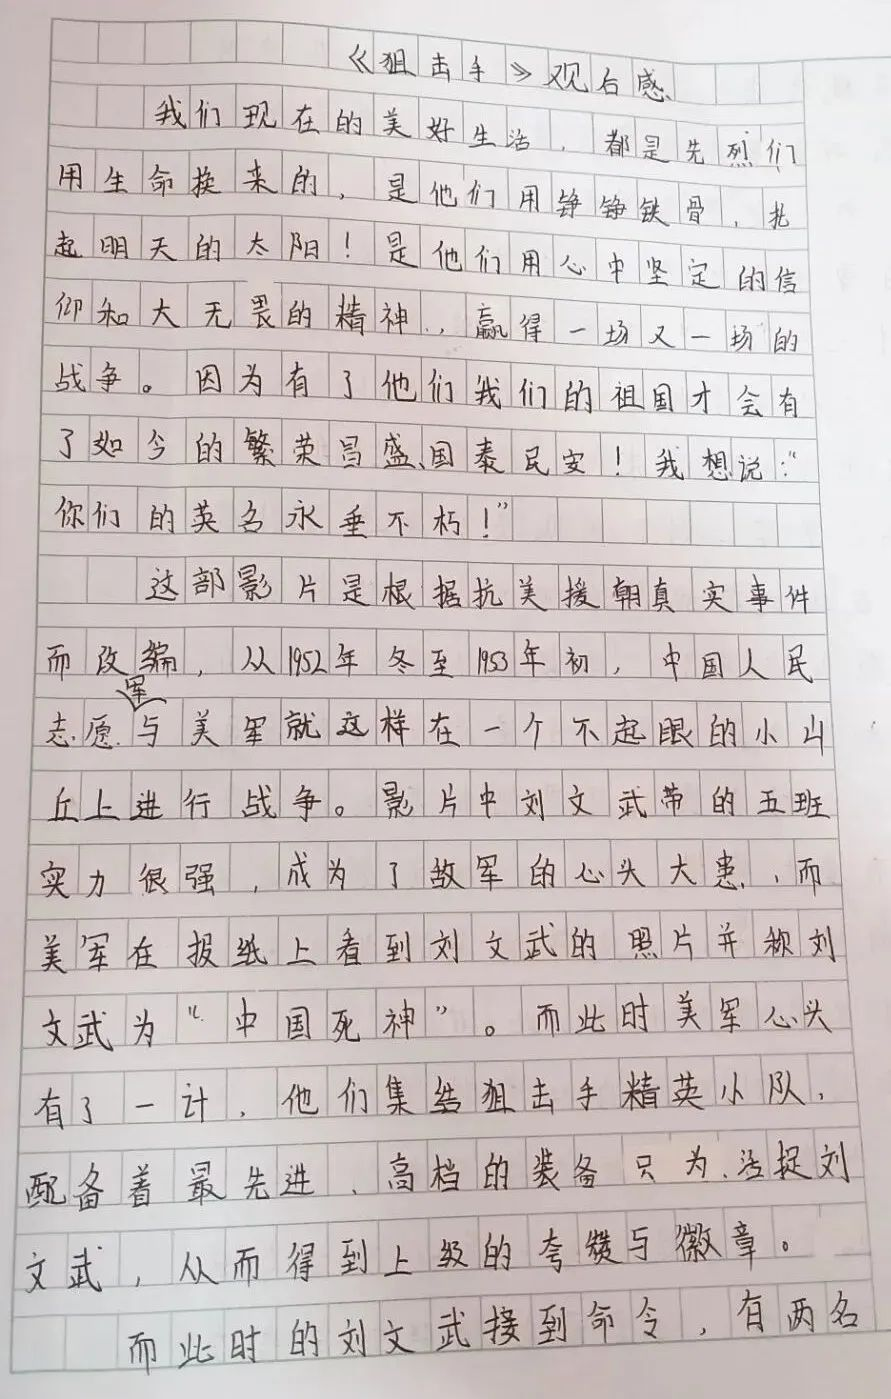 《狙击手》观后感
我们现在的美好生活，都是先烈们
用生命换来的，是他们用铮铮铁骨，扎
起明天的太阳！是他们用心中坚定的信
仰和大无畏的精神，赢得一场又一场的
战争。因为有了他们我们的祖国才会有
了如今的繁荣昌盛、国泰民安！我想说：“
你们的英名永垂不朽！”
这部影片是根据抗美援朝真实事件
而改编，从1952年冬至1953年初，中国人民
志愿军与美军就这样在一个不起眼的小山
丘上进行战争。影片中刘文武带的五班
实力很强，成为了敌军的心头大患，而
美军在报纸上看到刘文武的照片并称刘
文武为“中国死神”。而此时美军心头
有了一计，他们集结狙击手精英小队，
配备着最先进、高档的装备只为活捉刘
文武，从而得到上级的夸赞与徽章。
而此时的刘文武接到命令，有两名